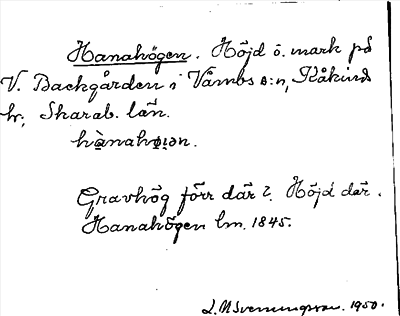 Hanahögen. Höjd ö. mark på
V. Backgården i Våmbs s:n, Kåkinds
hr; Skarab. län.
hànahø̣i̯ən.
Gravhög förr där? Höjd där.
Hanahögen lm. 1845.
L. M. Svenungsson. 1950.